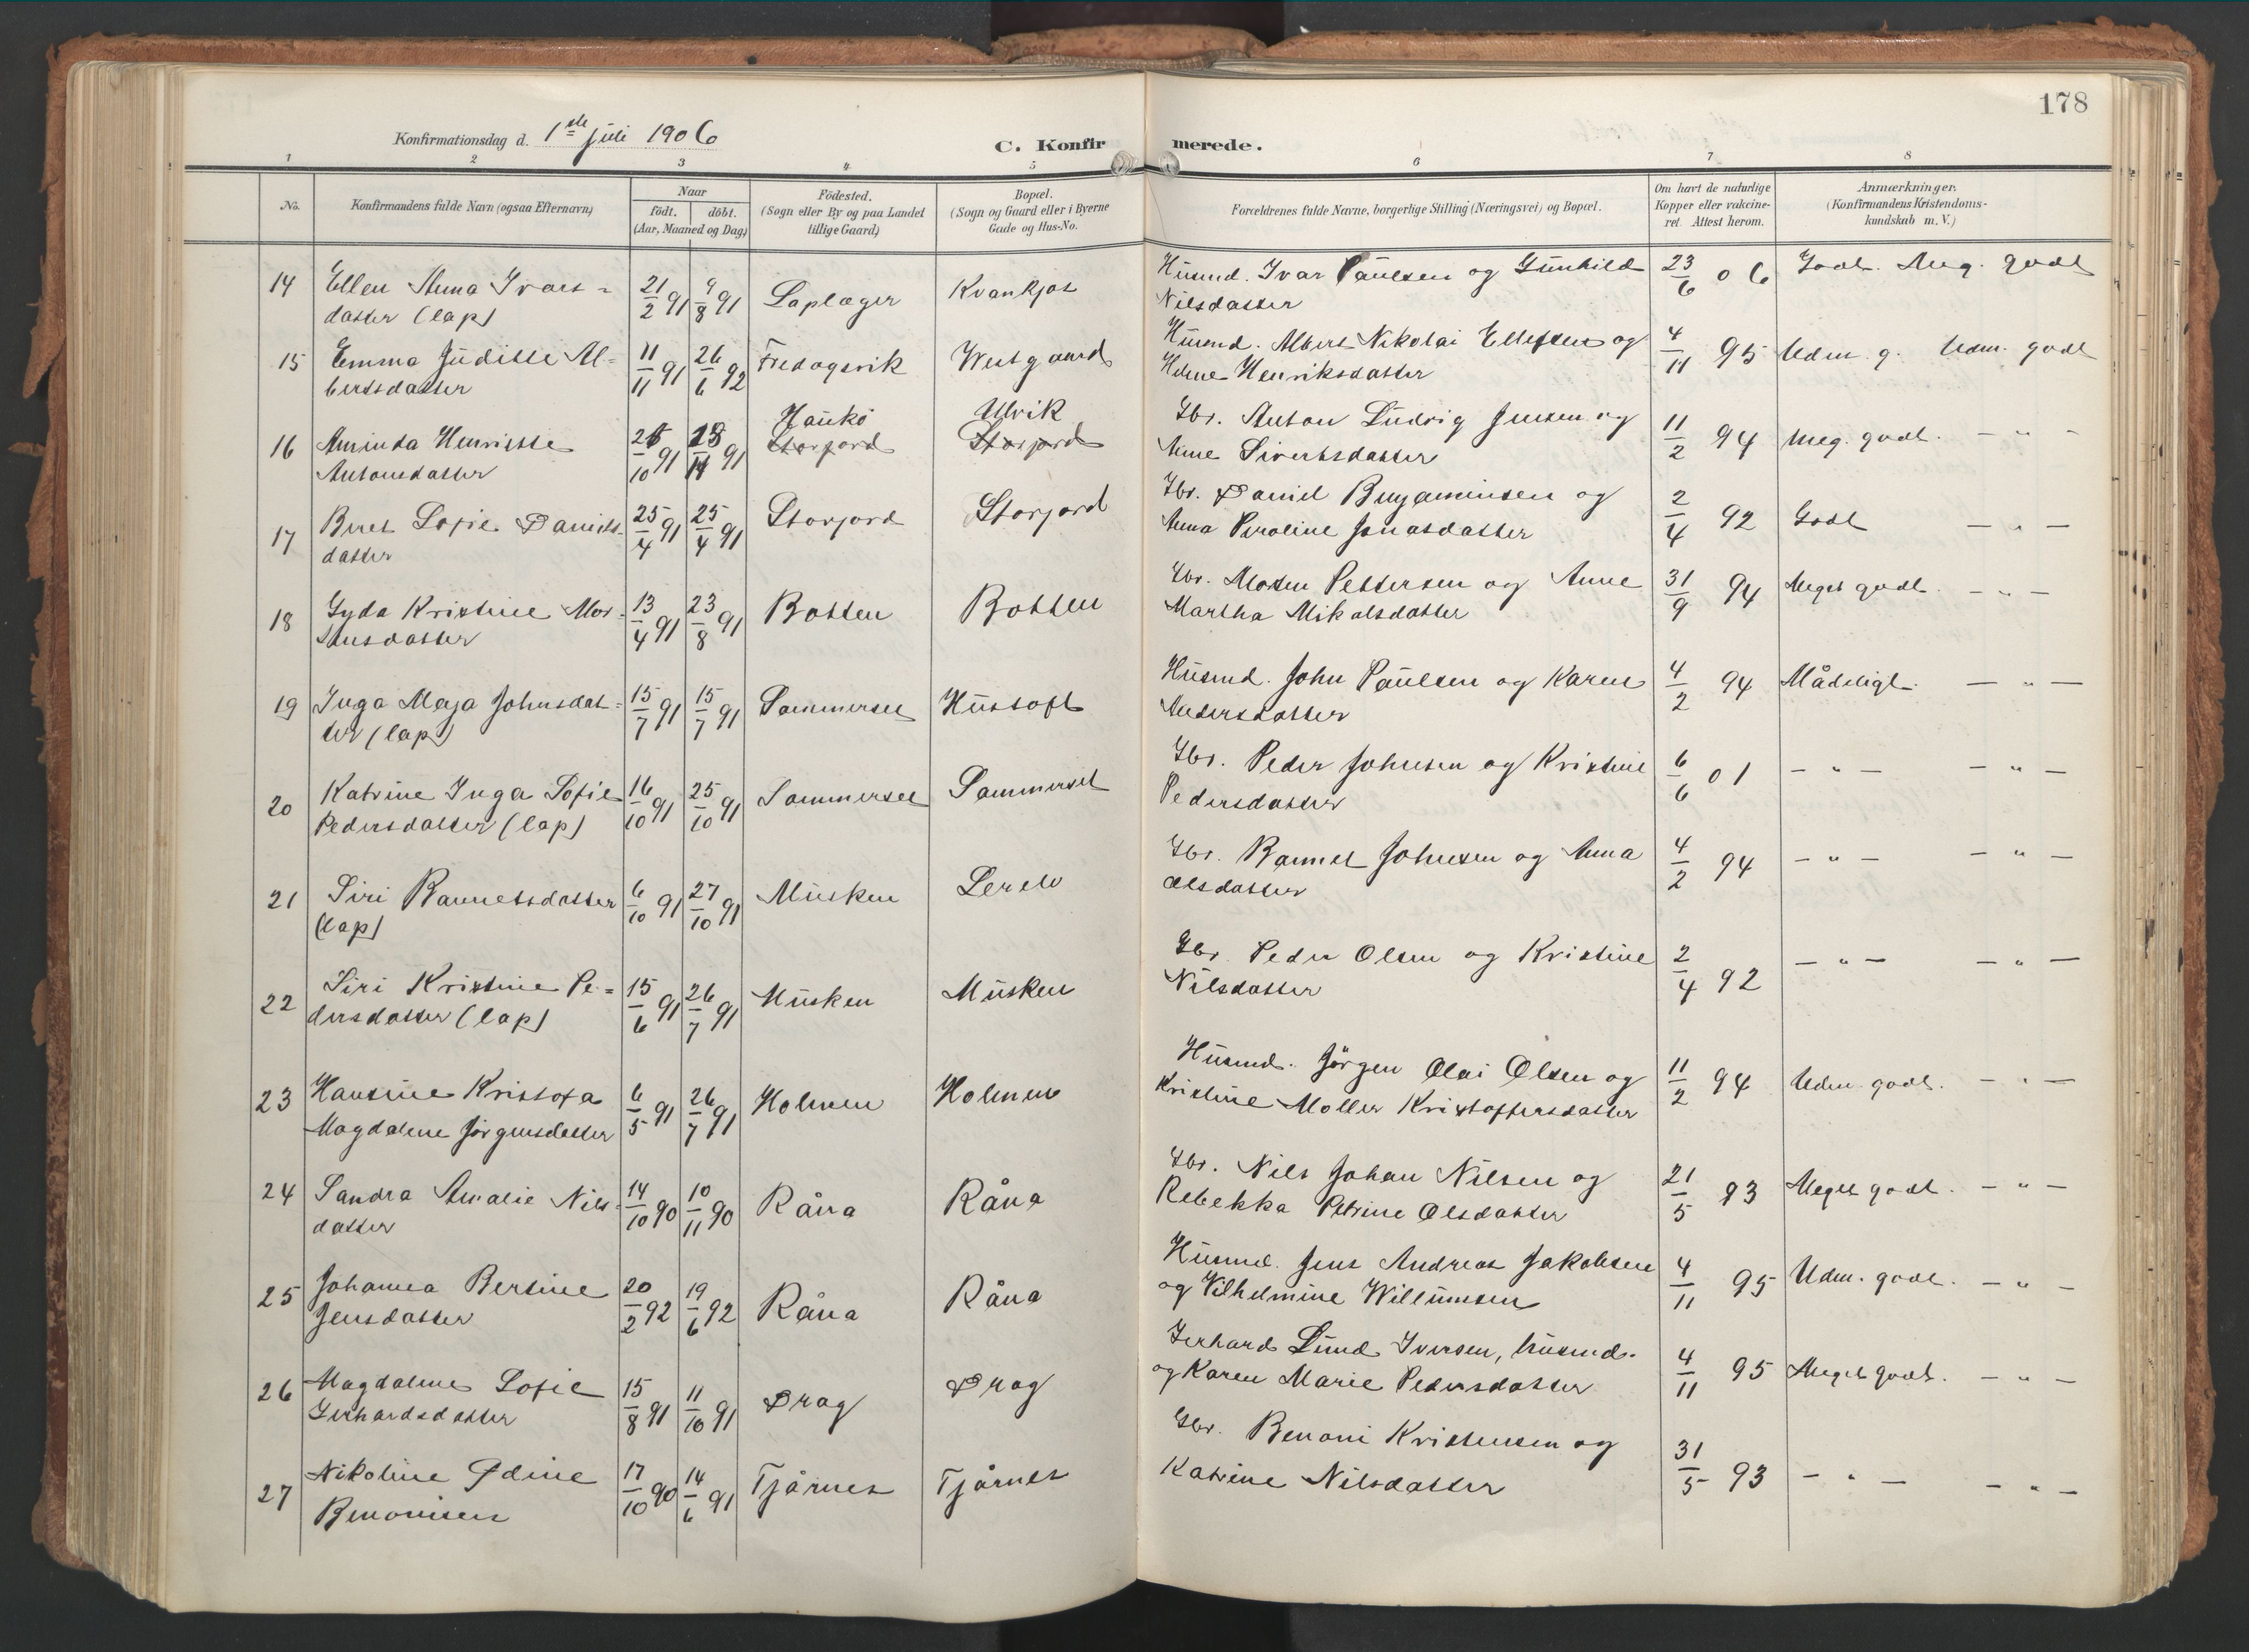 178
Konfirmationsdag d. 1ste juli 1906
C. Konfirmerede.
1 2 3 4 5 6 7 8
No. Konfirmandens fulde Navn (ogsaa Efternavn) Naar födt. döbt. (Aar, Maaned og Dag) Födested. (Sogn eller By og paa Landet tillige Gaard) Bopæl. (Sogn og Gaard eller i Byerne Gade og Hus-No. Forældrenes fulde Navne, borgerlige Stilling (Næringsvei) og Bopæl. Om havt de naturlige Kopper eller vakcineret. Attest herom. Anmærkninger. (Konfirmandens Kristendomskundskab m. V.)
14 Ellen Anna Ivars= 21/2 91 9/8 91 Laplæger Kvankjos Husmd. Ivar Paulsen og Gunhild 23/6 06 Godt. Meg. godt
datter (lap) Nilsdatter
15 Emma Juditte Al= 11/11 91 26/6 92 Fredagsvik Westgaard Husmd. Albert Nikolai Ellefsen og 4/11 95 Udm. g. Udm. godt
bertsdatter Helene Henriksdatter
Haukö Ulvik
16 Aminda Henriette 10 91 91 Storjord Storjord Gbr. Anton Ludvig Jensen og 11/2 94 Meg. godt. - " -
Antonsdatter Anne Sivertsdatter
17 Beret Sofie Daniels- 25/4 91 25/4 91 Storjord Storjord Gbr. Daniel Benjaminsen og 2/4 92 Godt - " -
datter Anna Peroline Jonasdatter
18 Gyda Kristine Mor- 13/4 91 23/8 91 Botten Botten Gbr. Morten Pettersen og Anne 31/9 94 Meget godt. - " -
tensdatter Martha Mikalsdatter
19 Inga Maja Johnsdat= 15/7 91 15/7 91 Sommerset Hustoft Husmd. John Paulsen og Karen 4/2 94 Mådeligt. - " -
ter (lap) Andersdatter
20 Katrine Inga Sofie 16/10 91 25/10 91 Sommerset Sommerset Gbr. Peder Johnsen og Kristine 6/6 01 - " - - " -
Pedersdatter (lap) Pedersdatter
21 Siri Rannetsdatter 6/10 91 27/10 91 Musken Lerelv Gbr. Rannet Johnsen og Anna 4/2 94 - " - - " -
(lap) Olsdatter
22 Siri Kristine Pe= 15/6 91 26/7 91 Musken Musken Gbr. Peder Olsen og Kristine 2/4 92 - " - - " -
dersdatter (lap) Nilsdatter
23 Hansine Kristofa 6/5 91 26/7 91 Holmen Holmen Husmd. Jörgen Olai Olsen og 11/2 94 Udm. godt. - " -
Magdalene Jörgensdatter Kristine Moller Kristoffersdatter
24 Sandra Amalie Nils- 14/10 90 10/11 90 Råna Råna Gbr. Nils Johan Nilsen og 21/5 93 Meget godt. - " -
datter Rebekka Petrine Olsdatter
25 Johanna Bertine 20/2 92 19/6 92 Råna Råna Husmd. Jens Andreas Jakobsen 4/11 95 Udm. godt. - " -
Jensdatter og Vilhelmine Willumsen
26 Magdalene Sofie 15/8 91 11/10 91 Drag Drag Gerhard Lund Iversen, husmd. 4/11 95 Meget godt. - " -
Gerhardsdatter og Karen Marie Pedersdatter
27 Nikoline Edine 17/10 90 14/6 91 Tjårnes Tjårnes Gbr. Benoni Kristensen og 31/5 93 - " - - " -
Benonisen Katrine Nilsdatter